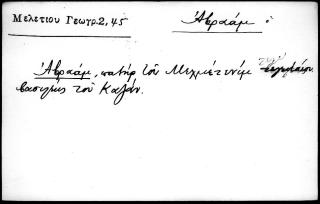 Μελετίου Γεωγρ.2,45
Ἀβραάμ :
Ἀβραάμ, πατήρ τοῦ Μεχμετενίμ
βασιλεὺς τοῦ Καζάν.